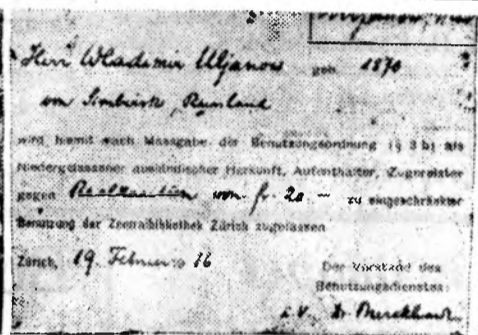 Herr Wladimir Uljanow geb. 1870
von Simbirsk, Russland
wird hiemit nach Massgabe der Benutzungsordnung (§ 3 b) als
Niedergelassener ausländischer Herkunft, Aufenthalter, Zugereister
gegen Realkaution von fr. 20 — zu eingeschränkter
Benutzung der Zentralbibliothek Zürich zugelassen
Zürich, 19. Februar 16
Der Vorstand des
Benutzungsdienstes:
i. V. Dr. Burckhardt